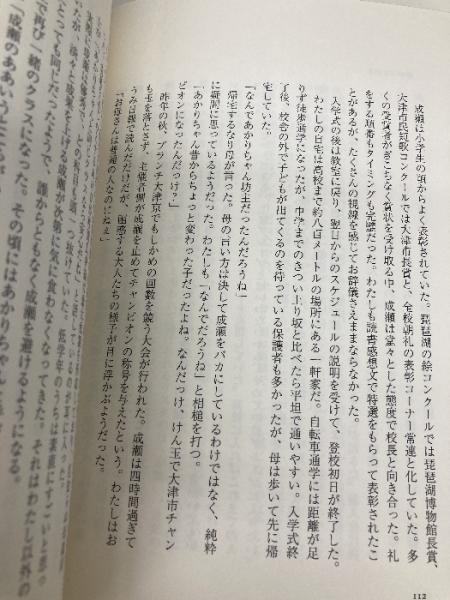 成瀬は小学生の頃からよく表彰されていた。琵琶湖の絵コンクールでは琵琶湖博物館長賞、
大津市民短歌コンクールでは大津市長賞と、全校朝礼の表彰コーナー常連と化していた。多
くの受賞者がぎこちなく賞状を受け取る中、成瀬は堂々とした態度で校長と向き合った。礼
をする順番もタイミングも完璧だった。わたしも読書感想文で特選をもらって表彰されたこ
とがあるが、たくさんの視線を感じてお辞儀さえままならなかった。
入学式の後は教室に戻り、翌日からのスケジュールの説明を受けて、登校初日が終了した。
わたしの自宅は高校まで約八百メートルの場所にある一軒家だ。自転車通学には距離が足
りず徒歩通学になったが、中学までのきつい上り坂と比べたら平坦で通いやすい。入学式終
了後、校舎の外で子どもが出てくるのを待っている保護者も多かったが、母は歩いて先に帰
宅していた。
「なんであかりちゃん坊主だったんだろうね」
帰宅するなり母が言った。母の言い方は決して成瀬をバカにしているわけではなく、純粋
に疑問に思っているようだった。わたしも「なんでだろうね」と相槌を打つ。
「あかりちゃん昔からちょっと変わった子だったよね。なんだっけ、けん玉で大津市チャン
ピオンになったんだっけ？」
昨年の秋、ブランチ大津京でもしかめの回数を競う大会が行われた。成瀬は四時間過ぎて
も玉を落とさず、主催者側が成瀬を止めてチャンピオンの称号を与えたという。わたしはお
うみ日報で読んだだけだが、困惑する大人たちの様子が目に浮かぶようだった。
「お母さんは普通の人なのにねぇ」
112